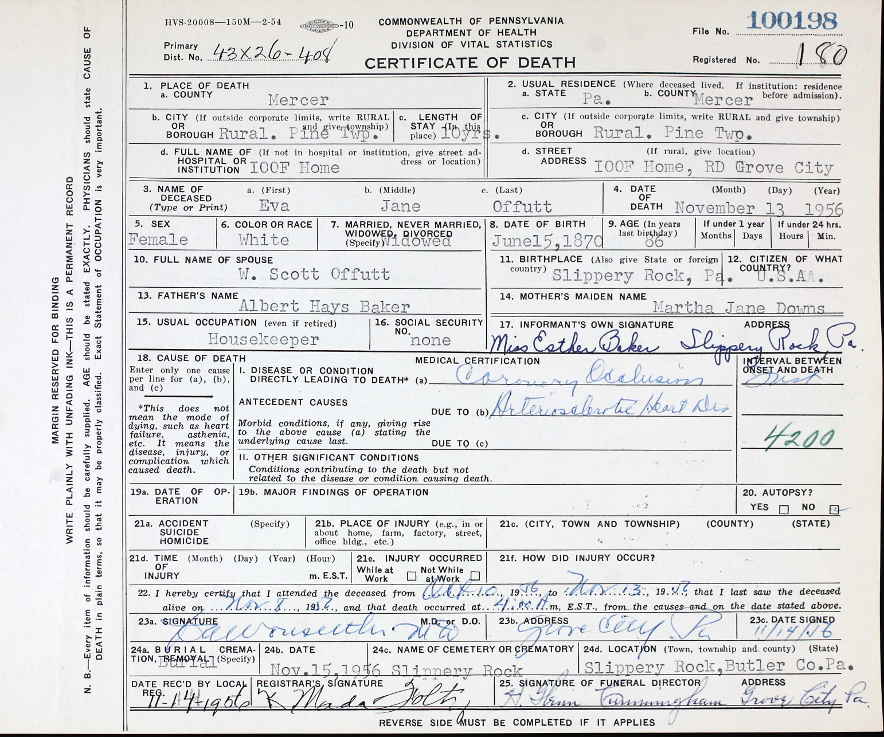 HVS-20008—150M—2-54 -10
COMMONWEALTH OF PENNSYLVANIA
DEPARTMENT OF HEALTH
DIVISION OF VITAL STATISTICS
CERTIFICATE OF DEATH
File No. 100198
Primary Dist. No. 43X26-408
Registered No. 180
MARGIN RESERVED FOR BINDING
WRITE PLAINLY WITH UNFADING INK—THIS IS A PERMANENT RECORD
N. B.—Every item of information should be carefully supplied. AGE should be stated EXACTLY. PHYSICIANS should state CAUSE OF
DEATH in plain terms, so that it may be properly classified. Exact Statement of OCCUPATION is very important.
1. PLACE OF DEATH
a. COUNTY Mercer
b. CITY (If outside corporate limits, write RURAL and give township) OR BOROUGH Rural. Pine Twp.
c. LENGTH OF STAY (In this place) 10yrs.
d. FULL NAME OF (If not in hospital or institution, give street address or location) HOSPITAL OR INSTITUTION IOOF Home
2. USUAL RESIDENCE (Where deceased lived. If institution: residence before admission).
a. STATE Pa. b. COUNTY Mercer
c. CITY (If outside corporate limits, write RURAL and give township) OR BOROUGH Rural. Pine Twp.
d. STREET ADDRESS (If rural, give location) IOOF Home, RD Grove City
3. NAME OF DECEASED (Type or Print) a. (First) Eva b. (Middle) Jane c. (Last) Offutt
4. DATE OF DEATH (Month) (Day) (Year) November 13 1956
5. SEX Female
6. COLOR OR RACE White
7. MARRIED, NEVER MARRIED, WIDOWED, DIVORCED (Specify) Widowed
8. DATE OF BIRTH June15,1870
9. AGE (In years last birthday) 86
If under 1 year Months Days
If under 24 hrs. Hours Min.
10. FULL NAME OF SPOUSE W. Scott Offutt
11. BIRTHPLACE (Also give State or foreign country) Slippery Rock, Pa.
12. CITIZEN OF WHAT COUNTRY? U.S.A.
13. FATHER'S NAME Albert Hays Baker
14. MOTHER'S MAIDEN NAME Martha Jane Downs
15. USUAL OCCUPATION (even if retired) Housekeeper
16. SOCIAL SECURITY NO. none
17. INFORMANT'S OWN SIGNATURE Miss Esther Baker ADDRESS Slippery Rock Pa.
18. CAUSE OF DEATH
Enter only one cause per line for (a), (b), and (c)
*This does not mean the mode of dying, such as heart failure, asthenia, etc. It means the disease, injury, or complication which caused death.
MEDICAL CERTIFICATION
INTERVAL BETWEEN ONSET AND DEATH
I. DISEASE OR CONDITION DIRECTLY LEADING TO DEATH* (a) Coronary Occlusion
ANTECEDENT CAUSES
DUE TO (b) Arteriosclerotic Heart Dis
Morbid conditions, if any, giving rise to the above cause (a) stating the underlying cause last.
DUE TO (c)
4200
II. OTHER SIGNIFICANT CONDITIONS
Conditions contributing to the death but not related to the disease or condition causing death.
19a. DATE OF OPERATION
19b. MAJOR FINDINGS OF OPERATION
20. AUTOPSY? YES NO
21a. ACCIDENT SUICIDE HOMICIDE (Specify)
21b. PLACE OF INJURY (e.g., in or about home, farm, factory, street, office bldg., etc.)
21c. (CITY, TOWN AND TOWNSHIP) (COUNTY) (STATE)
21d. TIME OF INJURY (Month) (Day) (Year) (Hour) m. E.S.T.
21e. INJURY OCCURRED While at Work Not While at Work
21f. HOW DID INJURY OCCUR?
22. I hereby certify that I attended the deceased from Oct 10, 1956, to Nov 13, 1956, that I last saw the deceased
alive on Nov. 8, 1956, and that death occurred at m, E.S.T., from the causes and on the date stated above.
23a. SIGNATURE M.D. or D.O.
23b. ADDRESS Grove City Pa
23c. DATE SIGNED 11/14/56
24a. BURIAL CREMATION, REMOVAL (Specify) Burial
24b. DATE Nov.15,1956
24c. NAME OF CEMETERY OR CREMATORY Slippery Rock
24d. LOCATION (Town, township and county) (State) Slippery Rock,Butler Co.Pa.
DATE REC'D BY LOCAL REG. 11-14-1956
REGISTRAR'S SIGNATURE
25. SIGNATURE OF FUNERAL DIRECTOR H. Glenn Cunningham ADDRESS Grove City Pa.
REVERSE SIDE MUST BE COMPLETED IF IT APPLIES